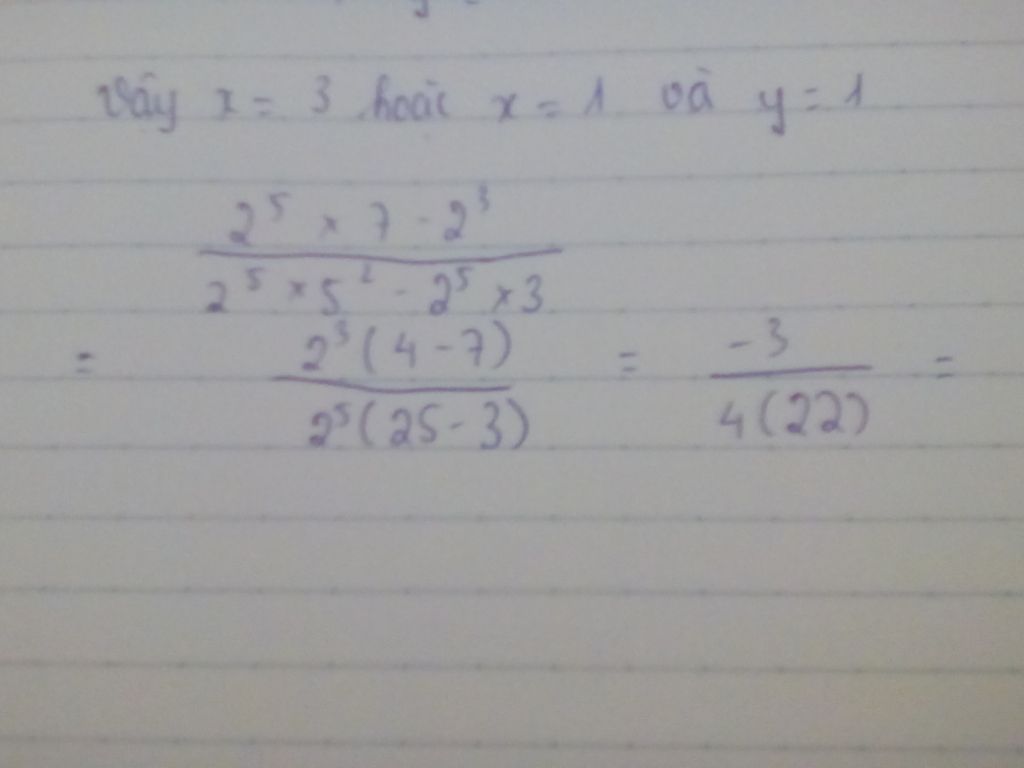 Vậy x = 3 hoặc x = 1 và y = 1
2⁵ × 7 - 2³
2⁵ × 5² - 2⁵ × 3
= 2³(4 - 7) = -3 =
2⁵(25 - 3) 4(22)